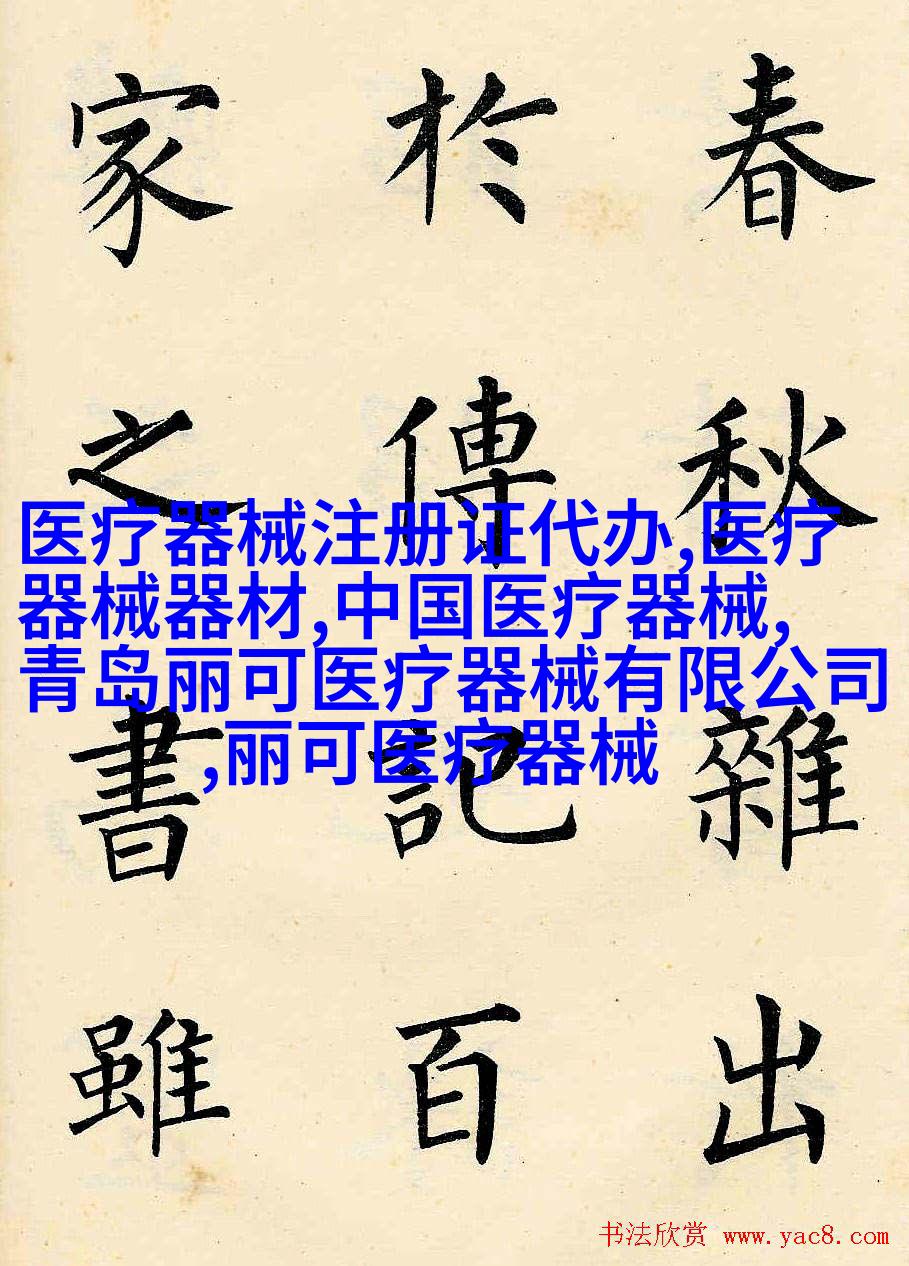 春秋雜出
於傳記百
家之書雖
医疗器械注册证代办,医疗
器械器材,中国医疗器械,
青岛丽可医疗器械有限公司
,丽可医疗器械
书法欣赏 www.yac8.com